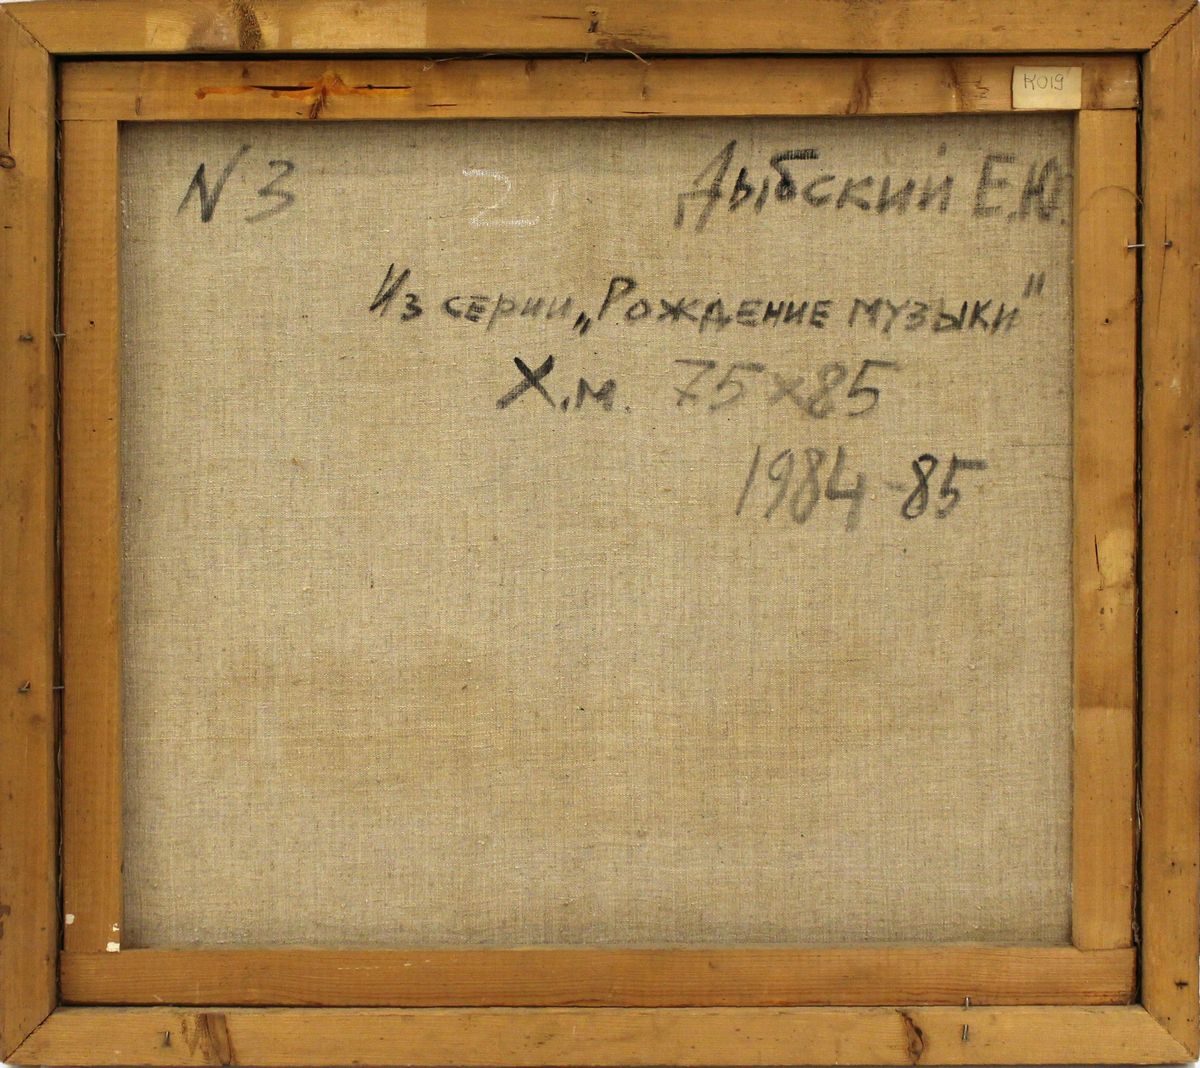 К019
N 3
Дыбский Е.Ю.
Из серии „Рождение музыки"
Х.м. 75х85
1984-85